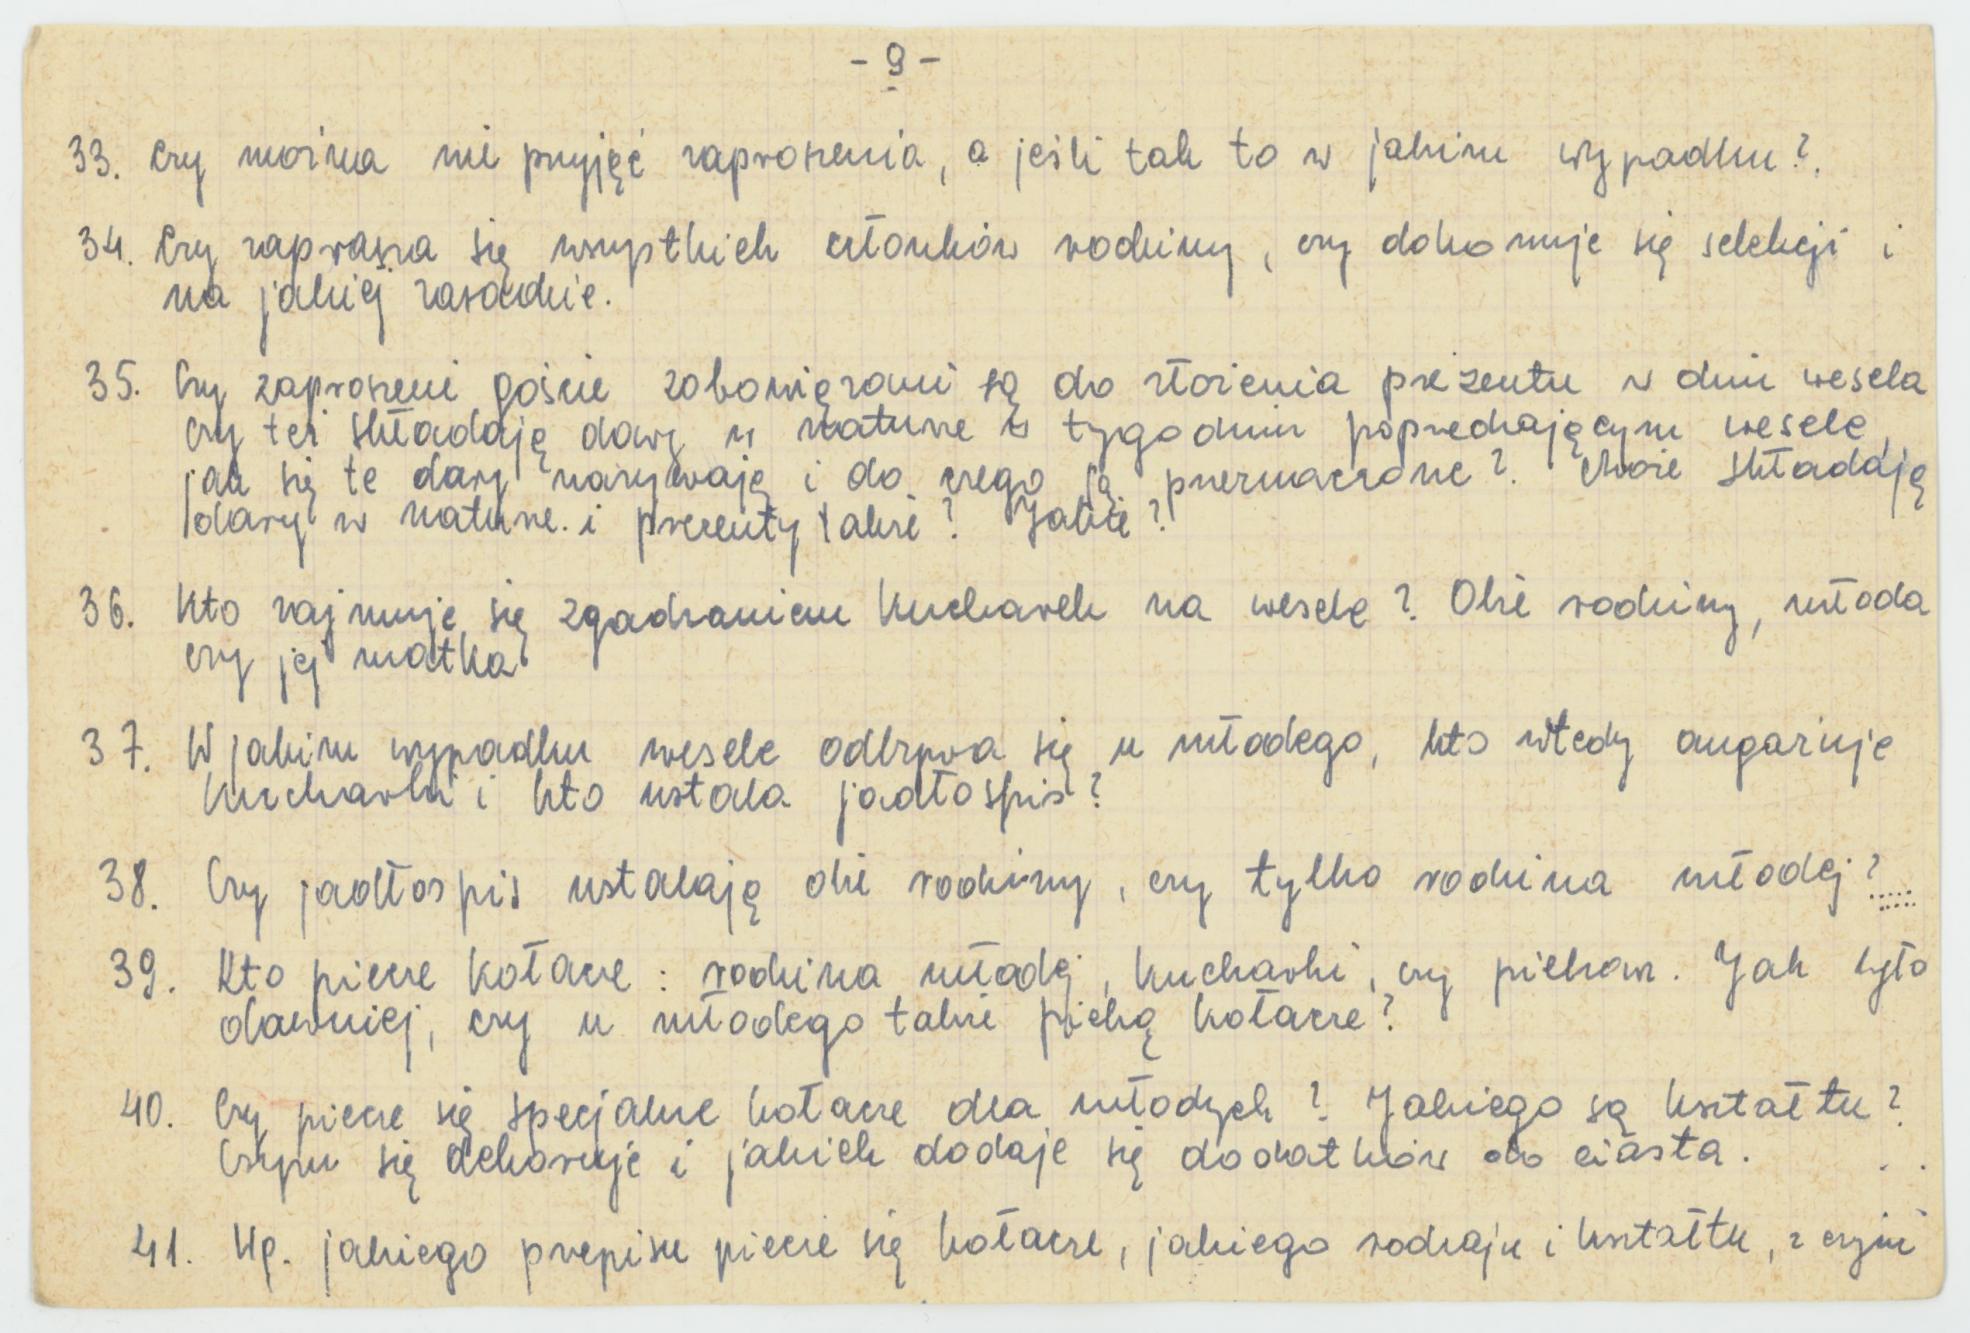 - 9 -
33. Czy można nie przyjęć zaproszenia, a jeśli tak to w jakim wypadku?.
34. Czy zaprasza się wszystkich członków rodziny, czy dokonuje się selekcji i
na jakiej zasadzie.
35. Czy zaproszeni goście zobowiązani są do złożenia prezentu w dniu wesela
czy też składają dary w naturze w tygodniu poprzedzającym wesele,
jak się te dary nazywają i do czego są przeznaczone? Może składają
dary w naturze i prezenty także? Jakie?
36. Kto zajmuje się zgadzaniem kucharek na wesele? Obie rodziny, młoda
czy jej matka
37. W jakim wypadku wesele odbywa się u młodego, kto wtedy angażuje
kucharki i kto ustala jadłospis?
38. Czy jadłospis ustalają obie rodziny, czy tylko rodzina młodej?
39. Kto piecze kołacze: rodzina młodej, kucharki, czy piekarz. Jak było
dawniej, czy u młodego także pieką kołacze?
40. Czy piecze się specjalne kołacze dla młodych? Jakiego są kształtu?
Czym się dekoruje i jakich dodaje się dodatków do ciasta.
41. Wg. jakiego przepisu piecze się kołacze, jakiego rodzaju i kształtu, z czym